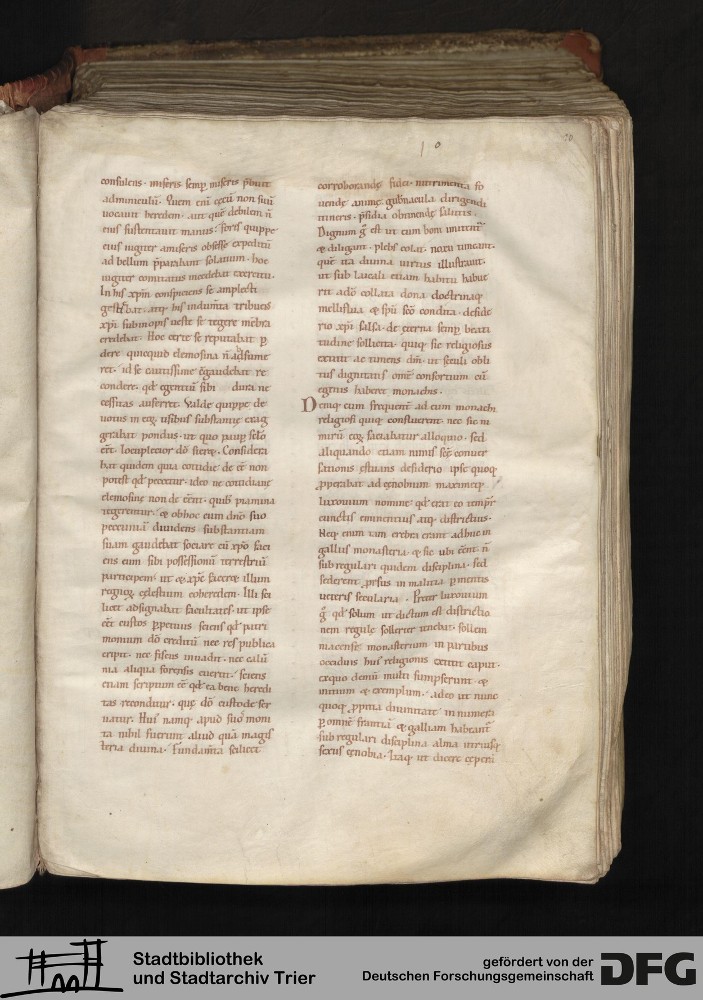 consulens. miseris semp miseris p̄buit
adminiculū. Quem enī cęcū non suū
uocauit heredem. aut quē debilem n̄
eius sustentauit manus? Foris quippe
eius iugiter amiseris obsesse expeditū
ad bellum p̄parabant solatium. hoc
iugiter comitatus incedebat exercitu.
In his xpm̄ conspiciens se amplecti
gestiebat. atq; his indumta tribuens
xpi sub inopis ueste se tegere mēbra
credebat. Hoc certe se reputabat p
dere quicquid elemosina n̄ adsume
ret. id se cautissime ōgaudebat re
condere. qd egentiū sibi dura ne
cessitas auferret. Valde quippe de
uotus in eog usibus substantię exag
gerabat pondus. ut quo paup sclo
eēt. locupletior dō fieret. Considera
bat quidem quia cotidie de eē non
potest qd peccetur. ideo ne cotidianę
elemosinę non de eēnt. quib piamina
tegerentur. & obhoc cum dn̄o suo
pecuniā diuidens substantiam
suam gaudebat sociare cū xpo faci
ens eum sibi possessionū terrestriū
participem. ut & xp̄c faceret illum
regnog cęlestium coheredem. Illi sci
licet adsignabat facultates. ut ipse
eēt custos ppetuus sciens qd patri
monium dō creditū nec res publica
eripit. nec fiscus inuadit. nec calū
nia aliqua forensis euertit. sciens
etiam scriptum eē qd ea bene heredi
tas reconditur. quę dō custode ser
uatur. Huī namq; apud suos moni
ta nihil fuerunt aliud quā magis
teria diuina. Fundamta scilicet
10
corroborandę fidei. nutrimenta fo
uendę animę. gubnacula dirigendi
itineris. psidia obtinendę salutis.
Dignum g est ut eum boni imitent
& diligant. plebs colat. noxii timeant.
quē ita diuina uirtus illustrauit.
ut sub laicali etiam habitu habue
rit adō collata dona doctrinaq;
melliflua & spū scō condita. deside
rio xpi salsa. de ęterna semp beati
tudine sollicita. quiq; sic religiosus
extitit ac timens dm̄. ut seculi obli
tus dignitatis omē consortium cū
egenis haberet monachis.
Deniq; cum frequent ad eum monachi
religiosi quiq; confluerent. nec sic ni
mirū eog saciabatur alloquio. sed
aliquando etiam nimis scē conuer
sationis ęstuans desiderio ipse quoq;
pperabat ad cęnobium maximeq;
luxouium nomine qd erat eo tempr
cunctis eminentius atq; districtius.
Neq; enim tam crebra erant adhuc in
gallus monasteria. & sic ubi eēnt. n̄
sub regulari quidem disciplina. sed
sederent psus in malitia pmentis
ueteris secularia. Preter luxouium
g qd solum ut dictum est districtio
nem regulę sollerter tenebat. sollem
niacense monasterium in partibus
occiduis huī religionis extitit caput.
exquo demū multi sumpserunt &
initium & exemplum. adeo ut nunc
quoq; ppitia diuinitate innumera
p omnē franciā & galliam habeant
sub regulari disciplina alma utriusq;
sexus cęnobia. Itaq; ut dicere cępera
Stadtbibliothek
und Stadtarchiv Trier
gefördert von der
Deutschen Forschungsgemeinschaft
DFG